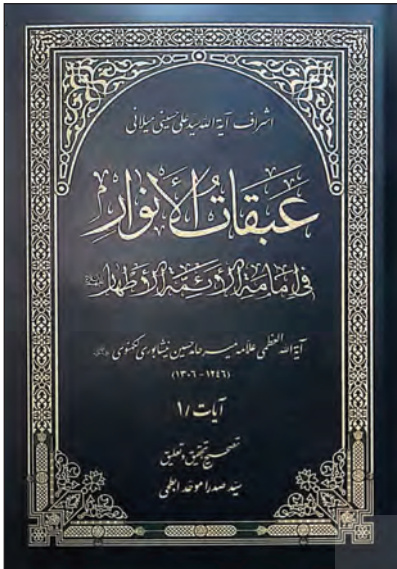 اشراف آیة الله سید علی حسینی میلانی
عَبَقاتُ الأنوار
في إمامة الأئمة الأطهار
آیة الله العظمی علامه میر حامد حسین نیشابوری لکهنوی
(۱۲۴۶ - ۱۳۰۶)
آیات / ۱
تصحیح، تحقیق و تعلیق
سید صدرا موحد ابطحی